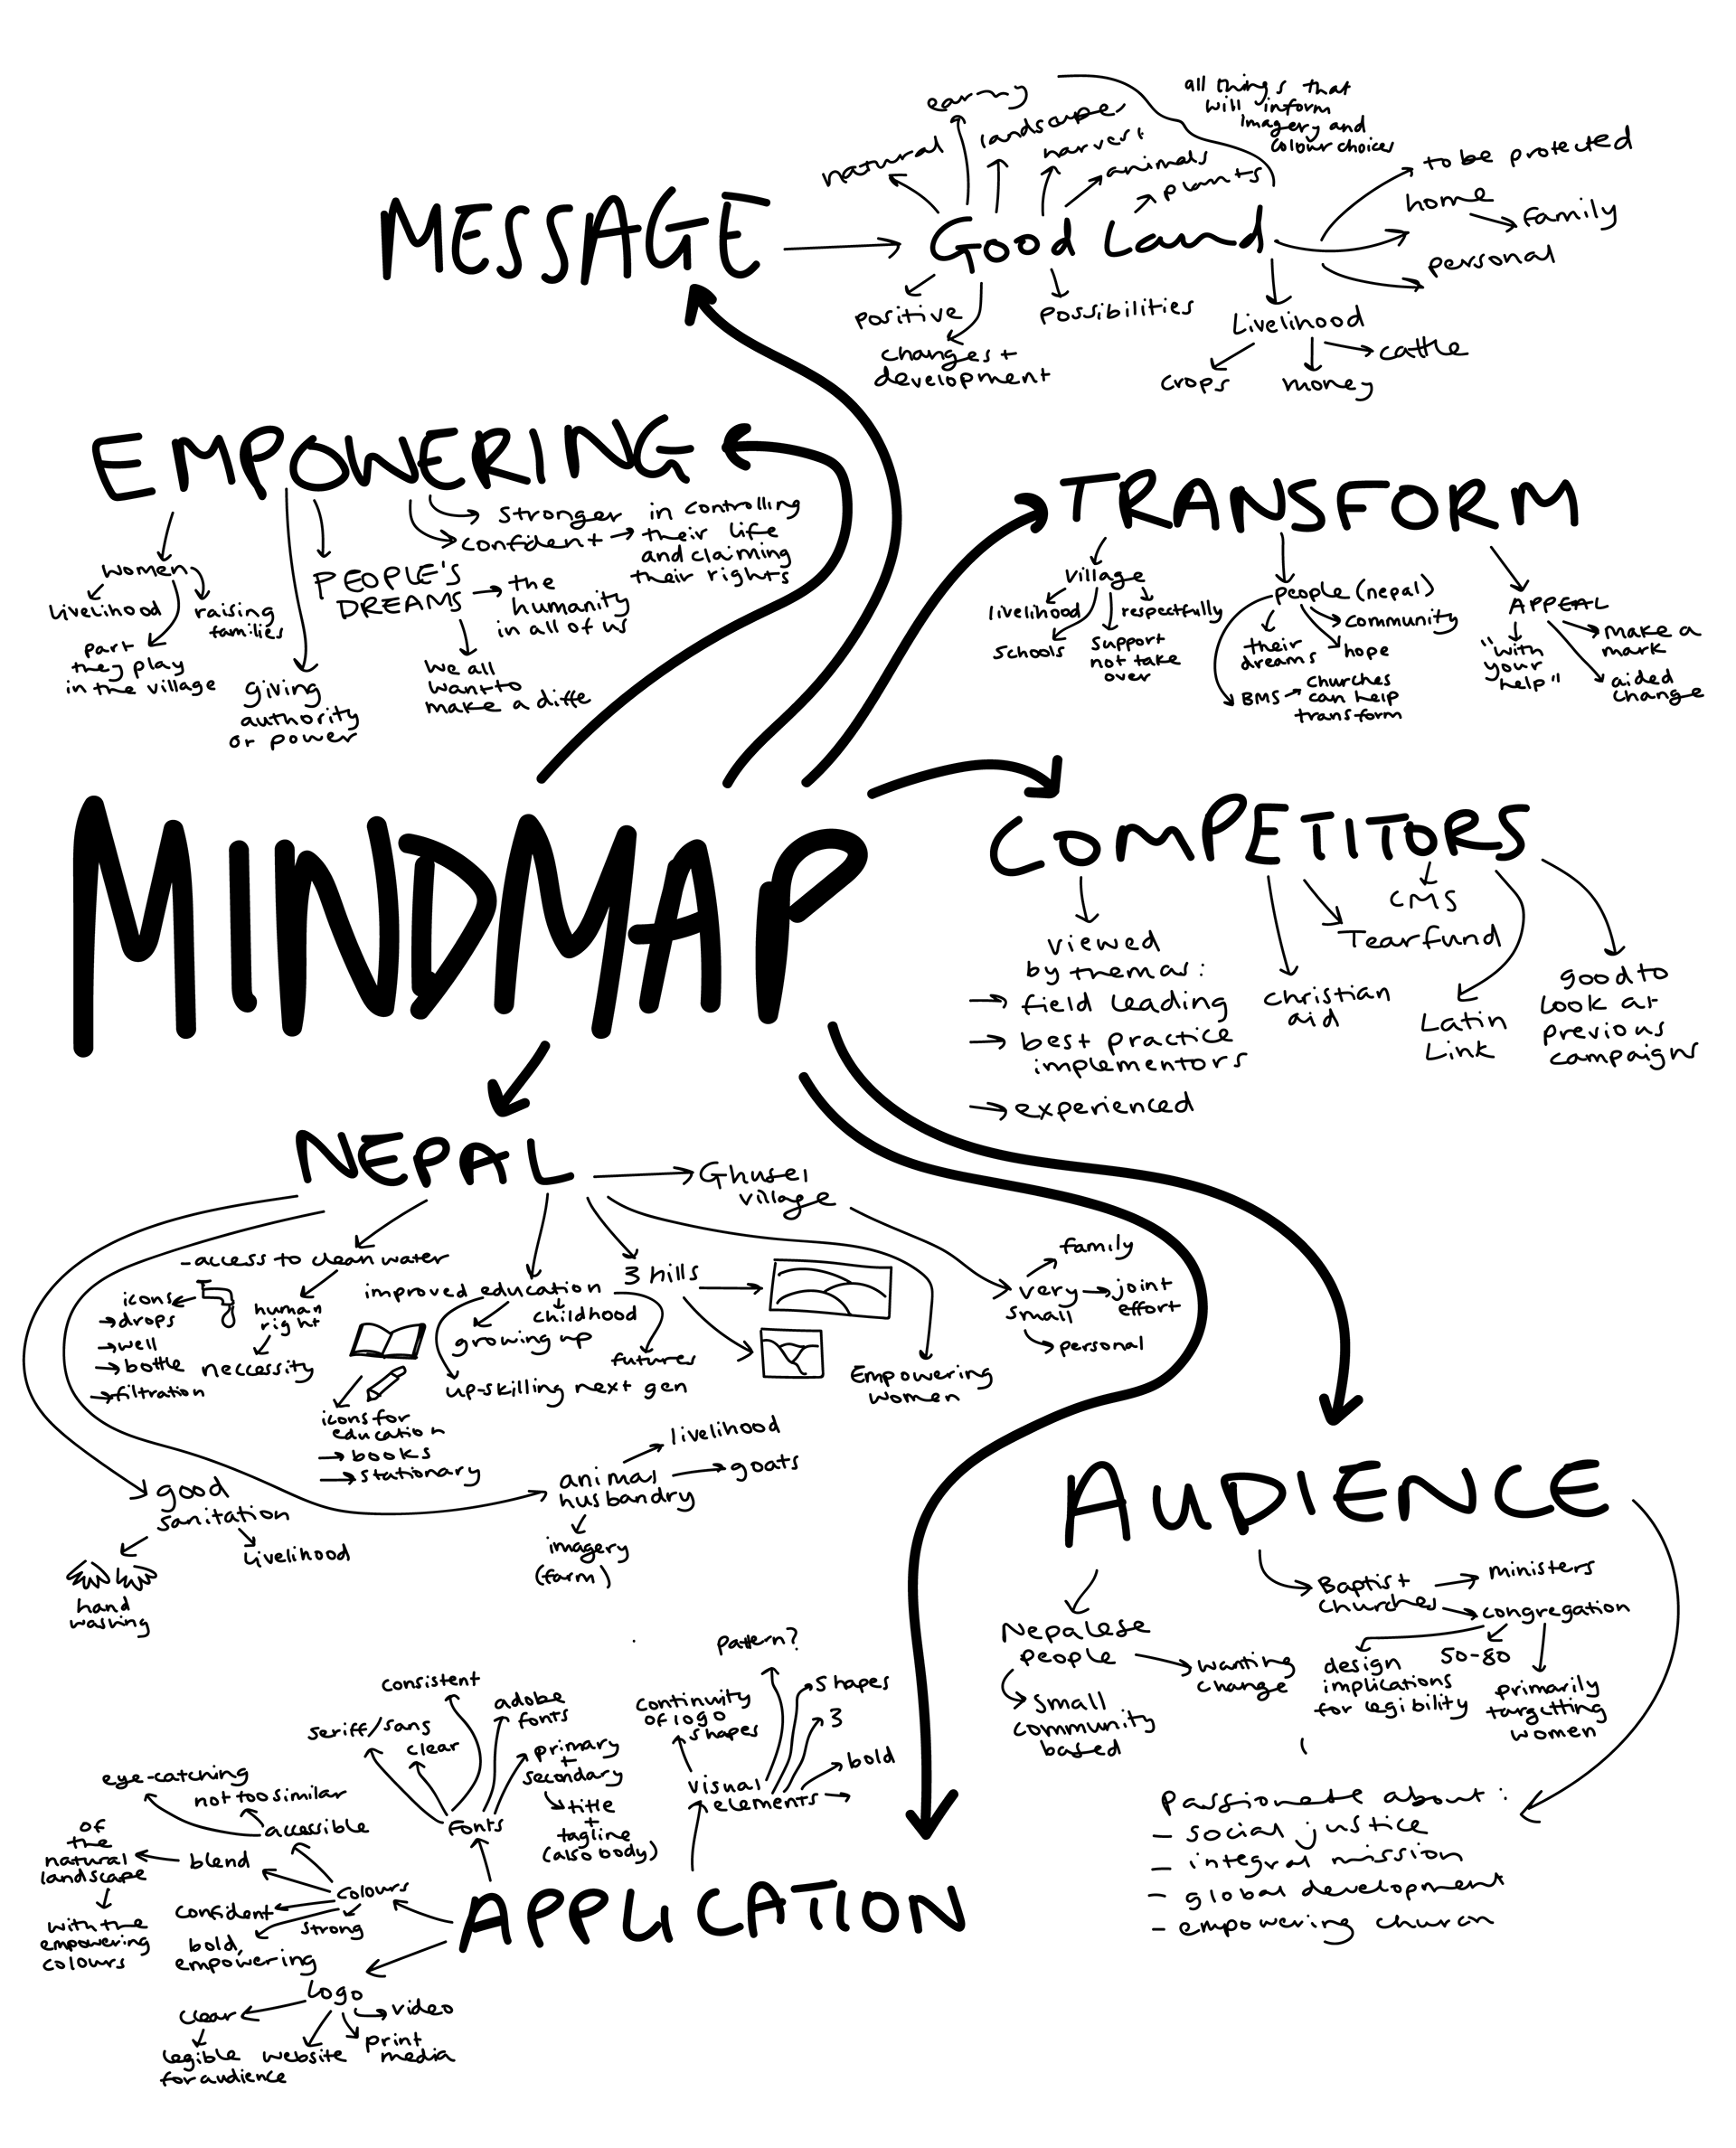 all things that
will inform
Imagery and
colour choices
earthy
landscape
natural
harvest
animals
plants
to be protected
home
family
personal
MESSAGE
Good Land
positive
possibilities
changes +
development
Livelihood
cattle
crops
money
EMPOWERING
stronger
confident
in controlling
their life
and claiming
their rights
women
livelihood
raising
families
part
they play
in the village
giving
authority
or power
PEOPLE'S
DREAMS
the
humanity
in all of us
we all
want to
make a diffe
TRANSFORM
village
livelihood
respectfully
schools
support
not take
over
people (nepal)
community
their
dreams
hope
BMS
churches
can help
transform
APPEAL
"with
your
help"
make a
mark
aided
change
MINDMAP
COMPETITORS
viewed
by them as:
field leading
best practice
implementors
experienced
christian
aid
Tearfund
CMS
Latin
Link
good to
look at
previous
campaigns
NEPAL
Ghusel
village
very
small
family
joint
effort
personal
- access to clean water
icons
drops
well
bottle
filtration
human
right
neccessity
improved education
childhood
growing up
futures
up-skilling next gen
icons for
education
books
stationary
3 hills
Empowering
women
good
sanitation
livelihood
hand
washing
animal
husbandry
livelihood
goats
imagery
(farm)
AUDIENCE
Nepalese
people
wanting
change
small
community
based
Baptist
churches
ministers
congregation
design
implications
for legibility
50-80
primarily
targetting
women
Passionate about:
- social justice
- integral mission
- global development
- empowering church
APPLICATION
Fonts
consistent
seriff/sans
clear
adobe
fonts
primary
+
secondary
title
+
tagline
(also body)
visual
elements
pattern?
continuity
of logo
shapes
shapes
3
bold
colours
accessible
eye-catching
not too similar
blend
of
the
natural
landscape
with the
empowering
colours
confident
strong
bold,
empowering
logo
clear
legible
for audience
website
print
media
video